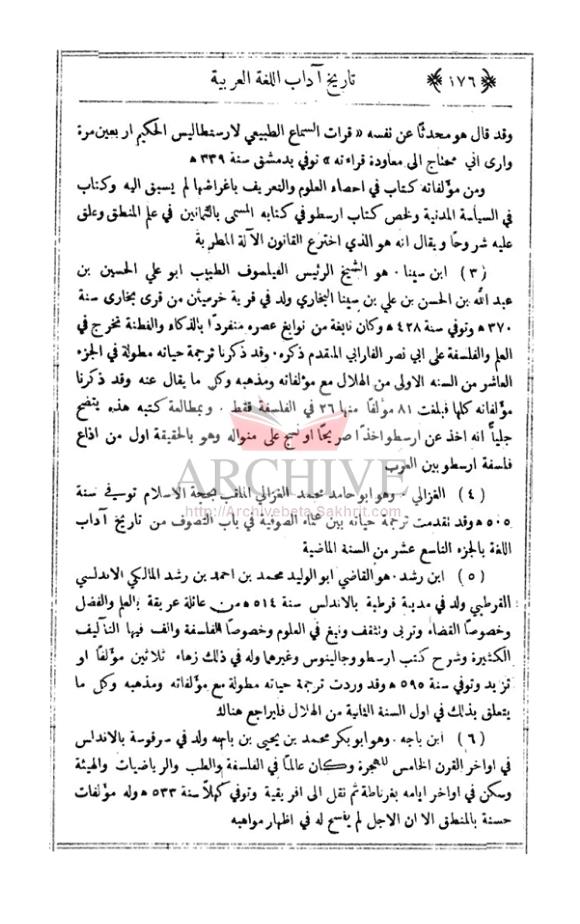 ﴿ ١٧٦ ﴾ تاريخ آداب اللغة العربية
وقد قال هو محدثًا عن نفسه « قرات السماع الطبيعي لارسطاليس الحكيم اربعين مرة
وارى اني محتاج الى معاودة قراءته » توفي بدمشق سنة ٣٣٩ ﻫ
ومن مؤلفاته كتاب في احصاء العلوم والتعريف باغراضها لم يسبق اليه وكتاب
في السياسة المدنية ولخص كتاب ارسطو في كتابه المسمى بالثمانين في علم المنطق وعلق
عليه شروحًا ويقال انه هو الذي اخترع القانون الآلة المطربة
( ٣ ) ابن سينا . هو الشيخ الرئيس الفيلسوف الطبيب ابو علي الحسين بن
عبد الله بن الحسن بن علي بن سينا البخاري ولد في قرية خرميثن من قرى بخارى سنة
٣٧٠ ﻫ وتوفي سنة ٤٢٨ ﻫ وكان نابغة من نوابغ عصره منفردًا بالذكاء والفطنة تخرج في
العلم والفلسفة على ابي نصر الفارابي المقدم ذكره . وقد ذكرنا ترجمة حياته مطولة في الجزء
العاشر من السنه الاولى من الهلال مع مؤلفاته ومذهبه وكل ما يقال عنه وقد ذكرنا
مؤلفاته كلها فبلغت ٨١ مؤلفًا منها ٢٦ في الفلسفة فقط . وبمطالعة كتبه هذه يتضح
جليًّا انه اخذ عن ارسطو اخذًا صريحًا او نسج على منواله وهو بالحقيقة اول من اذاع
فلسفة ارسطو بين العرب
ARCHIVE
( ٤ ) الغزالي . وهو ابو حامد محمد الغزالي الملقب بحجة الاسلام توفي سنة
http://Archivebeta.Sakhrit.com
٥٠٥ ﻫ وقد تقدمت ترجمة حياته بين علماء الصوفية في باب التصوف من تاريخ آداب
اللغة بالجزء التاسع عشر من السنة الماضية
( ٥ ) ابن رشد . هو القاضي ابو الوليد محمد بن احمد بن رشد المالكي الاندلسي
القرطبي ولد في مدينة قرطبة بالاندلس سنة ٥١٤ ﻫ من عائلة عريقة بالعلم والفضل
وخصوصًا القضاء وتربى وتثقف ونبغ في العلوم وخصوصًا الفلسفة والف فيها التآليف
الكثيرة وشرح كتب ارسطو وجالينوس وغيرهما وله في ذلك زهاء ثلاثين مؤلفًا او
تزيد وتوفي سنة ٥٩٥ ﻫ وقد وردت ترجمة حياته مطولة مع مؤلفاته ومذهبه وكل ما
يتعلق بذلك في اول السنة الثانية من الهلال فليراجع هنالك
( ٦ ) ابن باجه . وهو ابو بكر محمد بن يحيى بن باجه ولد في سرقوسة بالاندلس
في اواخر القرن الخامس للهجرة وكان عالمًا في الفلسفة والطب والرياضيات والهيئة
وسكن في اواخر ايامه بغرناطة ثم نقل الى افريقية وتوفي كهلًا سنة ٥٣٣ ﻫ وله مؤلفات
حسنة بالمنطق الا ان الاجل لم يفسح له في اظهار مواهبه